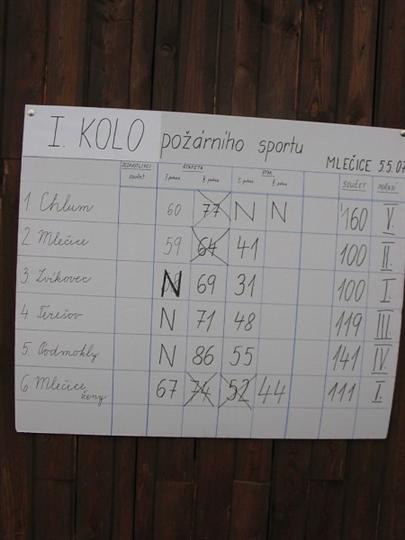 I. KOLO požárního sportu
MLEČICE 5.5.07
JEDNOTLIVCI ŠTAFETA ÚTOK
SOUČET I. pokus II. pokus I. pokus II. pokus SOUČET POŘADÍ
1 Chlum 60 77 N N 160 V.
2 Mlečice 59 64 41 100 II.
3. Zvíkovec N 69 31 100 I.
4. Terešov N 71 48 119 III.
5. Podmokly N 86 55 141 IV.
6 Mlečice ženy 67 74 52 44 111 I.